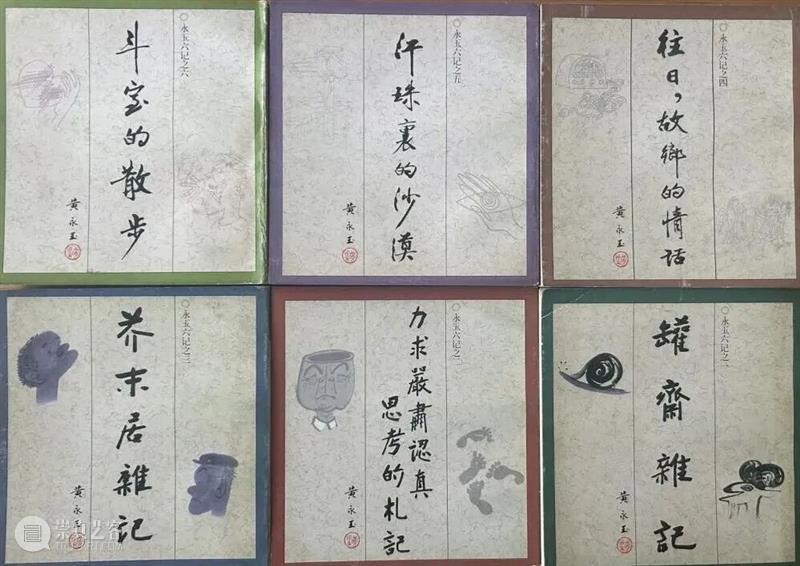 永玉六记之六
斗室的散步
黄永玉
永玉六记之五
汗珠裏的沙漠
黄永玉
永玉六记之四
往日，故鄉的情話
黄永玉
永玉六记之三
芥末居雜記
黄永玉
永玉六记之二
力求嚴肅認真
思考的札記
黄永玉
永玉六记之一
罐齋雜記
黄永玉
崇真艺客